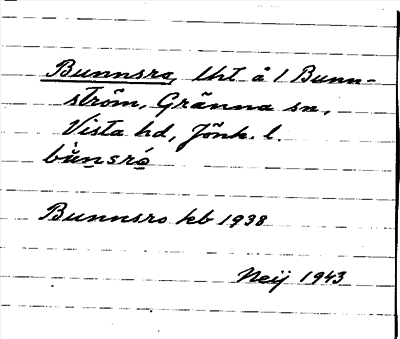 Bunnsro, lht å 1 Bunn-
ström, Gränna sn,
Vista hd, Jönk. l.
bùnsró
Bunnsro kb 1938
Neij 1943